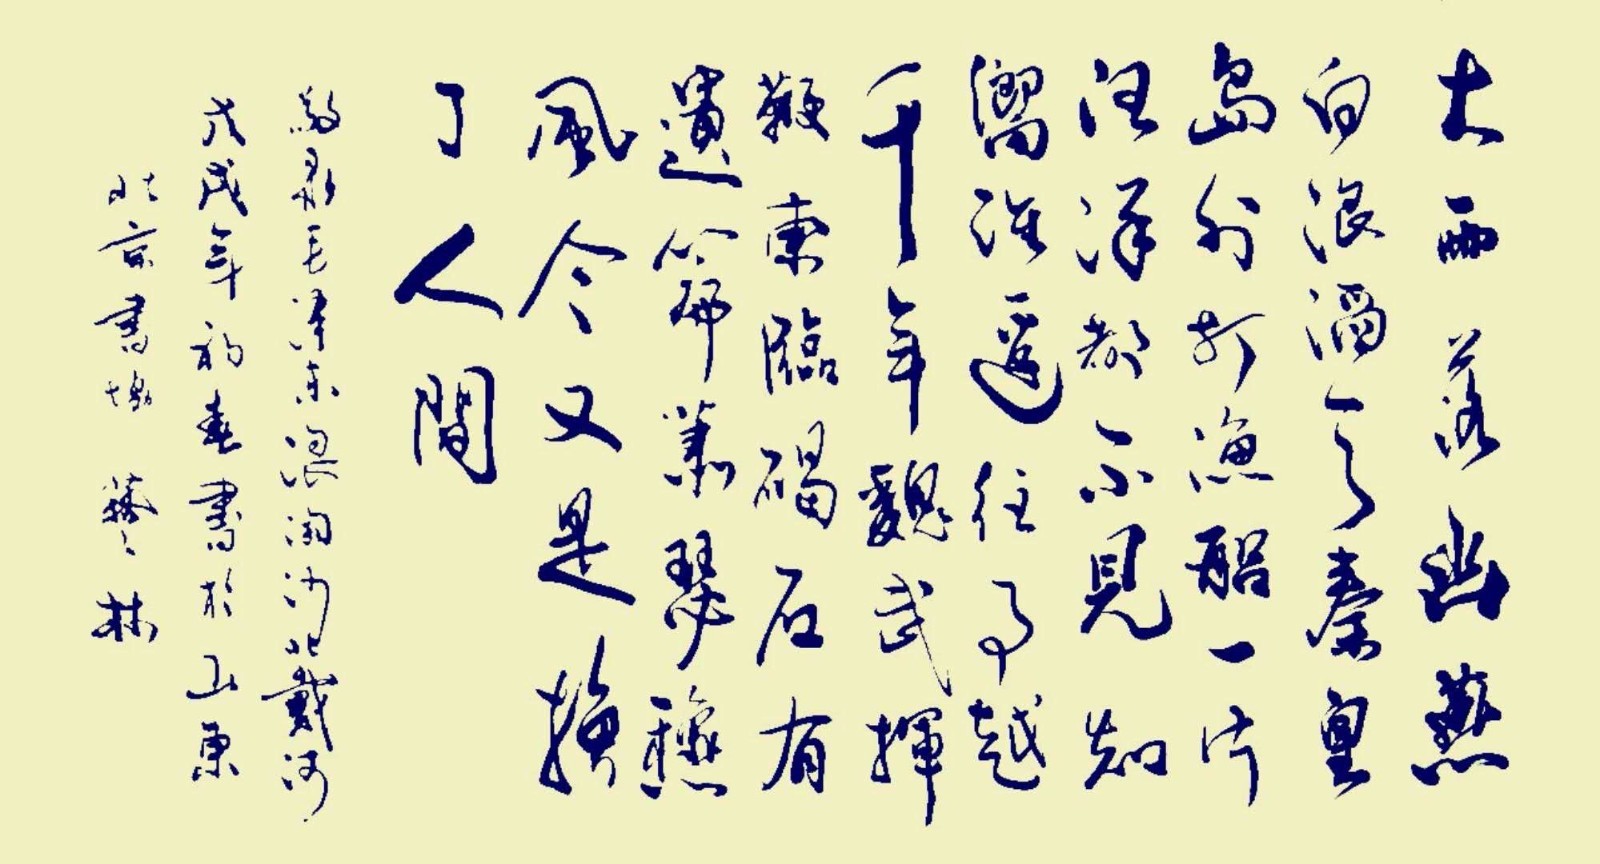 大雨落幽燕
白浪滔天秦皇
島外打漁船一片
汪洋都不見知
嚮誰邊往事越
千年魏武揮
鞭東臨碣石有
遺篇蕭瑟穐
風今又是換
了人間
敬录毛澤東浪淘沙北戴河
戊戌年初春書於山東
北京書 藝林